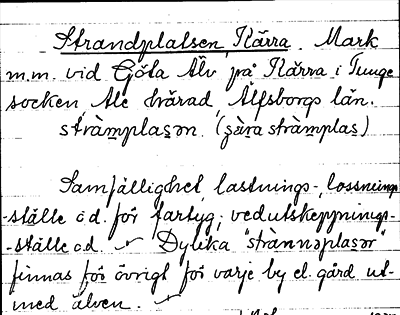 Strandplatsen, Kärra. Mark
m.m. vid Göta Älv på Kärra i Tunge
socken, Ale härad, Älfsborgs län.
stràmplas̲ən. (s̲ära stràmplas̲)
Samfällighet, lastnings-, lossnings-
-ställe o.d. för fartyg; vedutskeppnings-
-ställe o.d. Dylika "strànnəplas̲ər"
finnas för övrigt för varje by el. gård ut-
med älven.